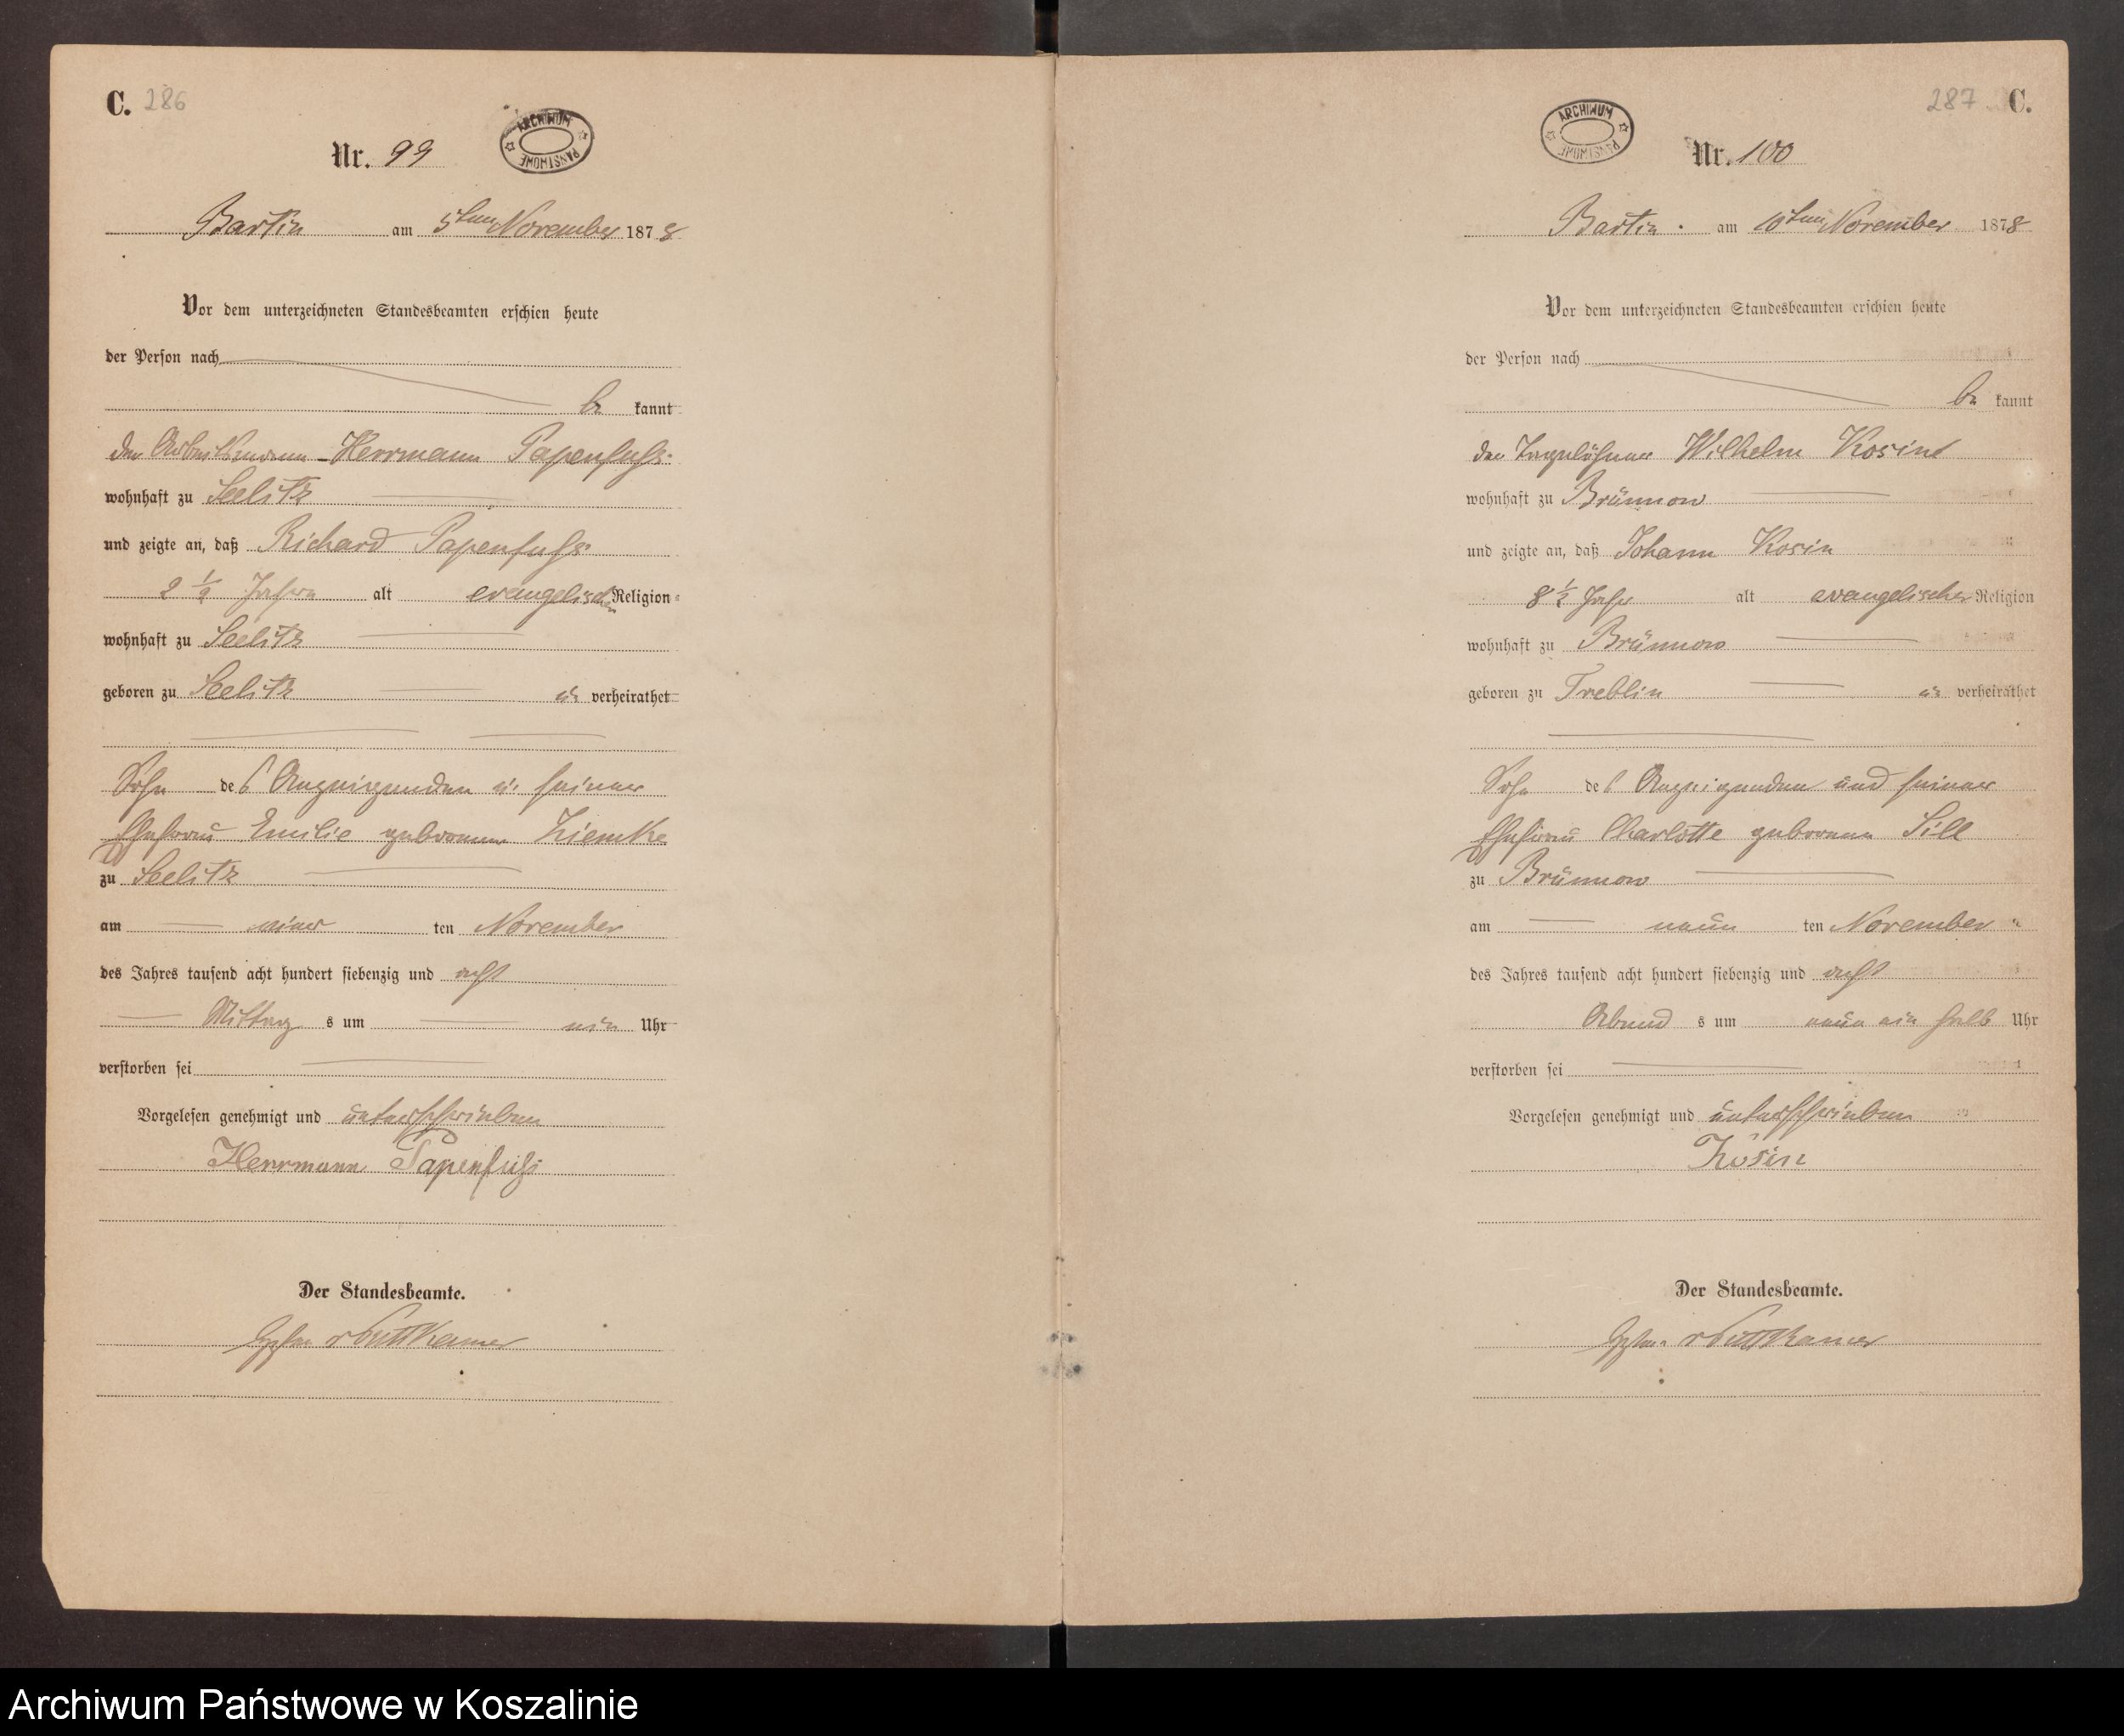 C. 286
ARCHIWUM PAŃSTWOWE
Nr. 99
Bartin am 5ten November 1878
Vor dem unterzeichneten Standesbeamten erschien heute
der Person nach
be kannt
der Arbeitsmann Herrmann Papenfuß
wohnhaft zu Seelitz
und zeigte an, daß Richard Papenfuß
2 ½ Jahre alt evangelischer Religion
wohnhaft zu Seelitz
geboren zu Seelitz verheirathet
Sohn des Anzeigenden u. seiner
Ehefrau Emilie geborene Ziemke
zu Seelitz
am ten November
des Jahres tausend acht hundert siebenzig und acht
Mittag s um ein Uhr
verstorben sei
Vorgelesen genehmigt und unterschrieben
Herrmann Papenfuß
Der Standesbeamte.
v Puttkamer
287 C.
ARCHIWUM PAŃSTWOWE
Nr. 100
Bartin am 10ten November 1878
Vor dem unterzeichneten Standesbeamten erschien heute
der Person nach
be kannt
der Tagelöhner Wilhelm
wohnhaft zu Brünnow
und zeigte an, daß Johann Kosin
8 ½ Jahr alt evangelischer Religion
wohnhaft zu Brünnow
geboren zu Treblin verheirathet
Sohn des Anzeigenden und seiner
Ehefrau Charlotte geborene Sill
zu Brünnow
am neun ten November
des Jahres tausend acht hundert siebenzig und acht
Abend s um neun ein halb Uhr
verstorben sei
Vorgelesen genehmigt und unterschrieben
Kosin
Der Standesbeamte.
v Puttkamer
Archiwum Państwowe w Koszalinie